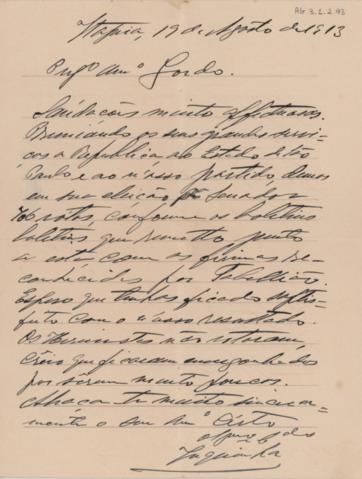 AG 3.2.2.93
Itapira, 19 de Agosto de 1913
Prezº Amº Gordo.
Saudações muito affectuosas.
Premiando os seus grandes servi-
ços a Republica, ao Estado de São
Paulo e ao nosso partido, demos
em sua eleição pª Senador
votos, conforme os boletins
boletins que remetto junto
a esta com as firmas re-
conhecidas por Tabellião.
Espero que tenhas ficado satis-
feito com o nosso resultado.
Os Hermistas não votaram,
creio que ficaram envergonhados
por serem muito poucos.
Abraça-te muito sincera-
mente o seu Amº